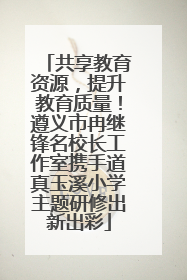 「共享教育
资源，提升
教育质量！
遵义市冉继
锋名校长工
作室携手道
真玉溪小学
主题研修出
新出彩」